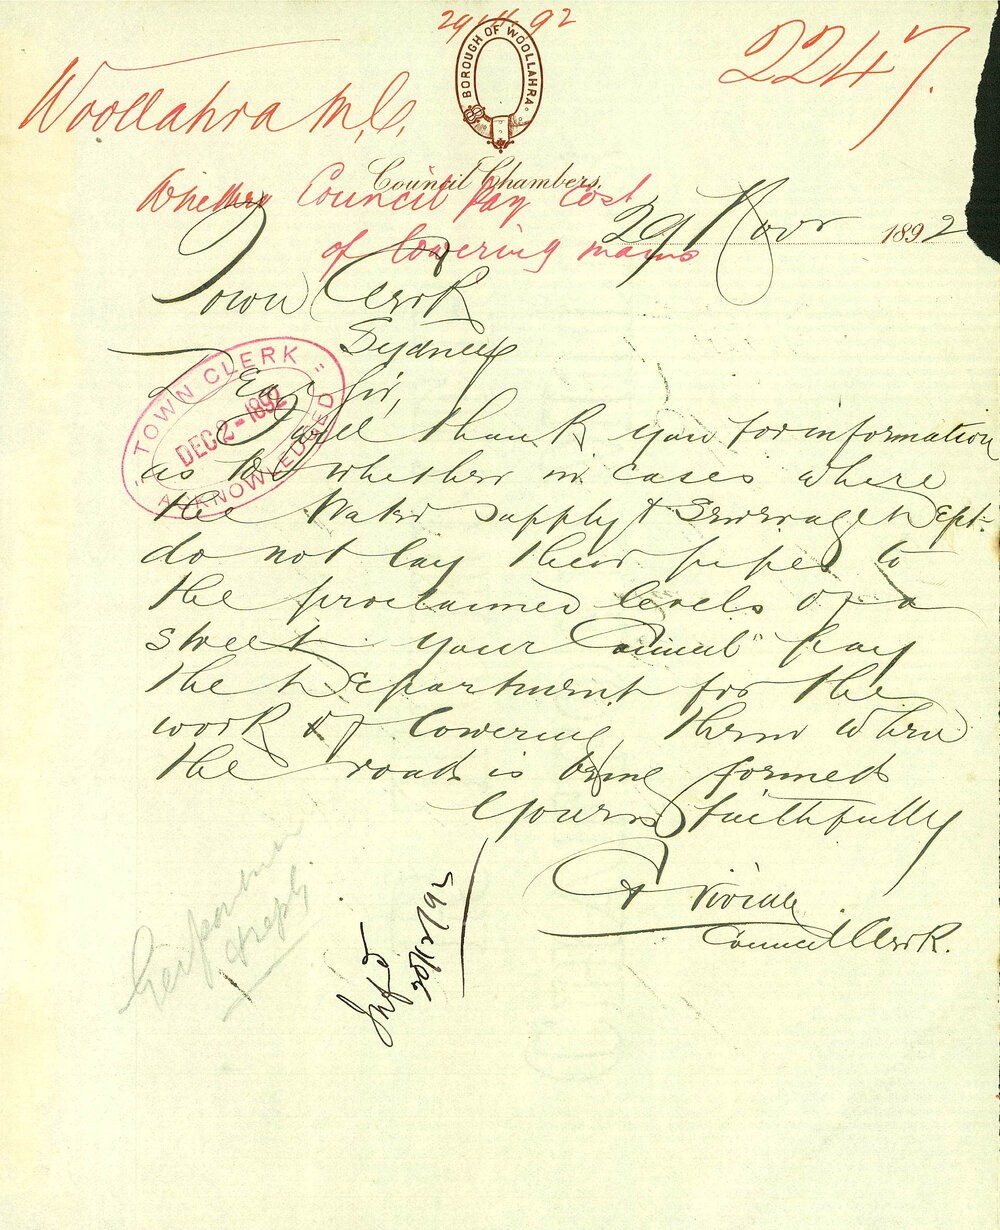 29.11.92
BOROUGH OF WOOLLAHRA.
2247.
Woollahra M.C.
Council Chambers,
Whether Council Pay Cost
of lowering mains
29 Novr 1892
Town Clerk
Sydney
Dear Sir,
TOWN CLERK
DEC 2 - 1892
ACKNOWLEDGED
I will thank you for information
as to whether in cases where
the Water Supply & Sewerage Dept.
do not lay their pipes to
the proclaimed levels of a
street your Council pay
the Department for the
work of lowering them when
the road is being formed
Yours faithfully
Council Clerk.
Infd
20/12/92